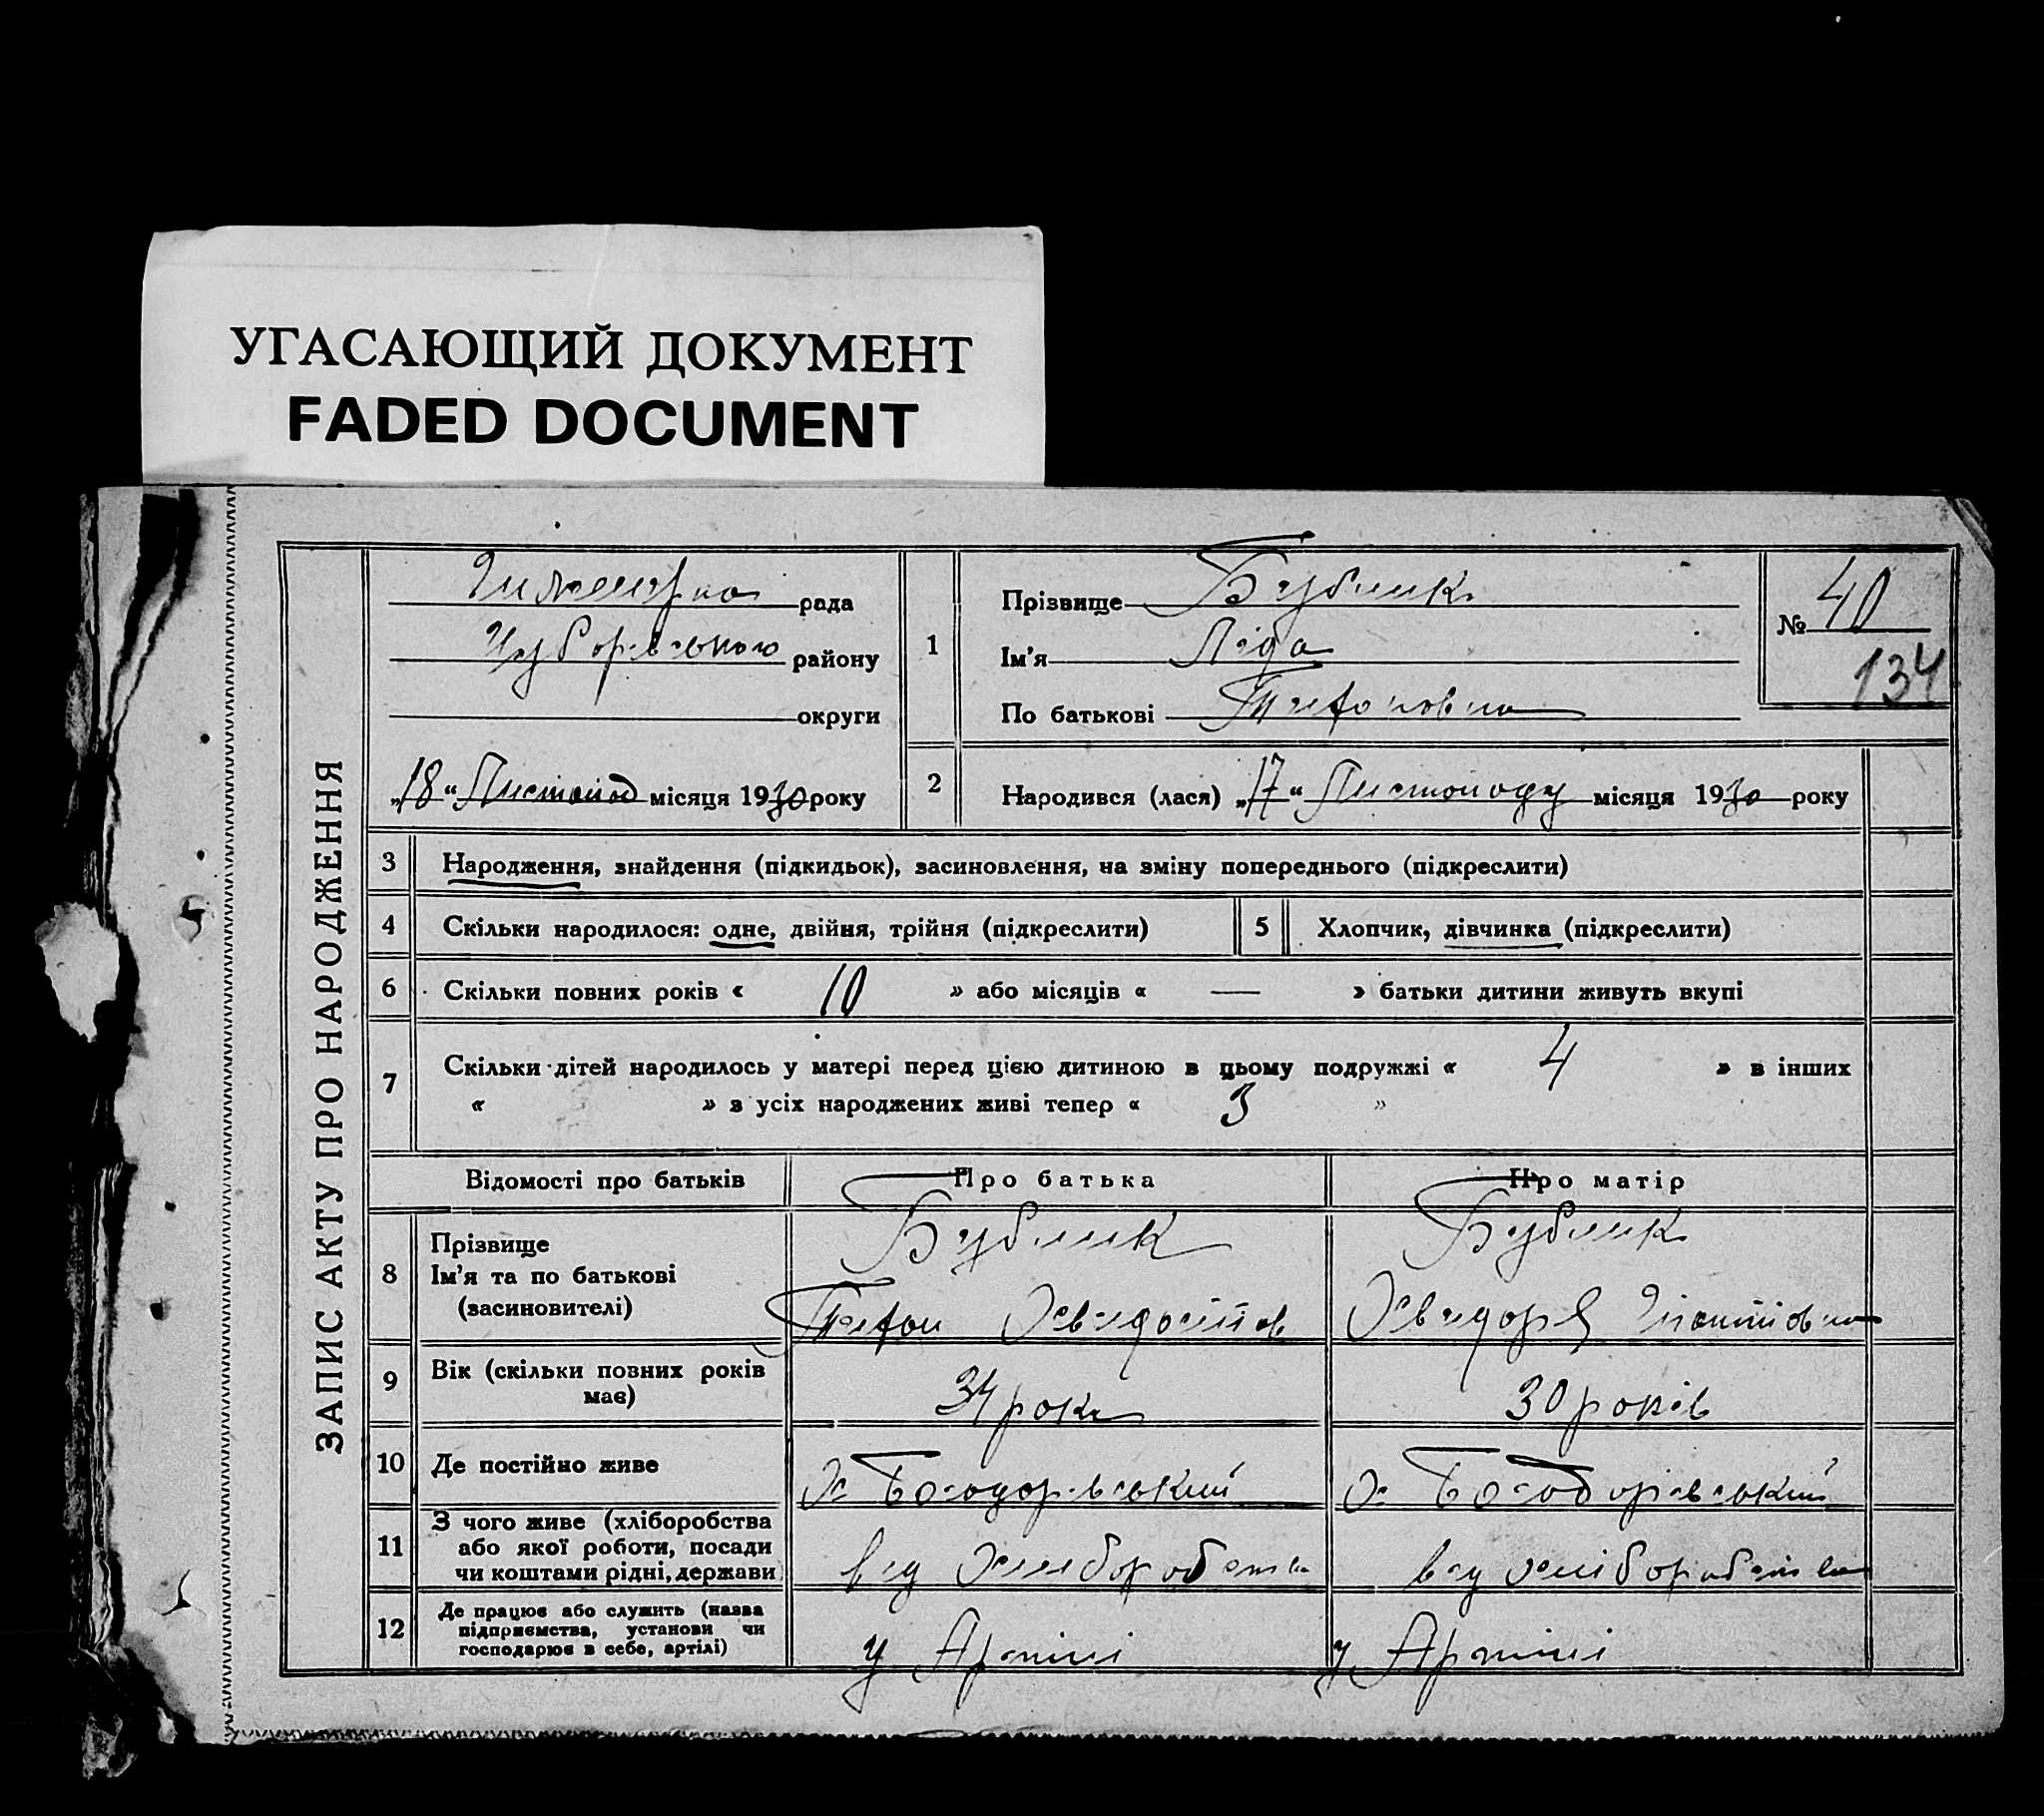 УГАСАЮЩИЙ ДОКУМЕНТ
FADED DOCUMENT
ЗАПИС АКТУ ПРО НАРОДЖЕННЯ
рада
району
округи
„18“ Листопад місяця 1930 року
1
Прізвище Бублик
Ім'я Ліда
По батькові
№ 40
134
2
Народився (лася) „17“ Листопаду місяця 1930 року
3 Народження, знайдення (підкидьок), засиновлення, на зміну попереднього (підкреслити)
4 Скільки народилося: одне, двійня, трійня (підкреслити)
5 Хлопчик, дівчинка (підкреслити)
6 Скільки повних років « 10 » або місяців « — » батьки дитини живуть вкупі
7 Скільки дітей народилось у матері перед цією дитиною в цьому подружжі « 4 » в інших
« » з усіх народжених живі тепер « 3 »
Відомості про батьків
Про батька
Про матір
8 Прізвище
Ім'я та по батькові
(засиновителі)
Бублик
Бублик
9 Вік (скільки повних років
має)
34 роки
30 років
10 Де постійно живе
11 З чого живе (хліборобства
або якої роботи, посади
чи коштами рідні, держави
від хліборобства
від хліборобства
12 Де працює або служить (назва
підприємства, установи чи
господарює в себе, артілі)
у Артілі
у Артілі